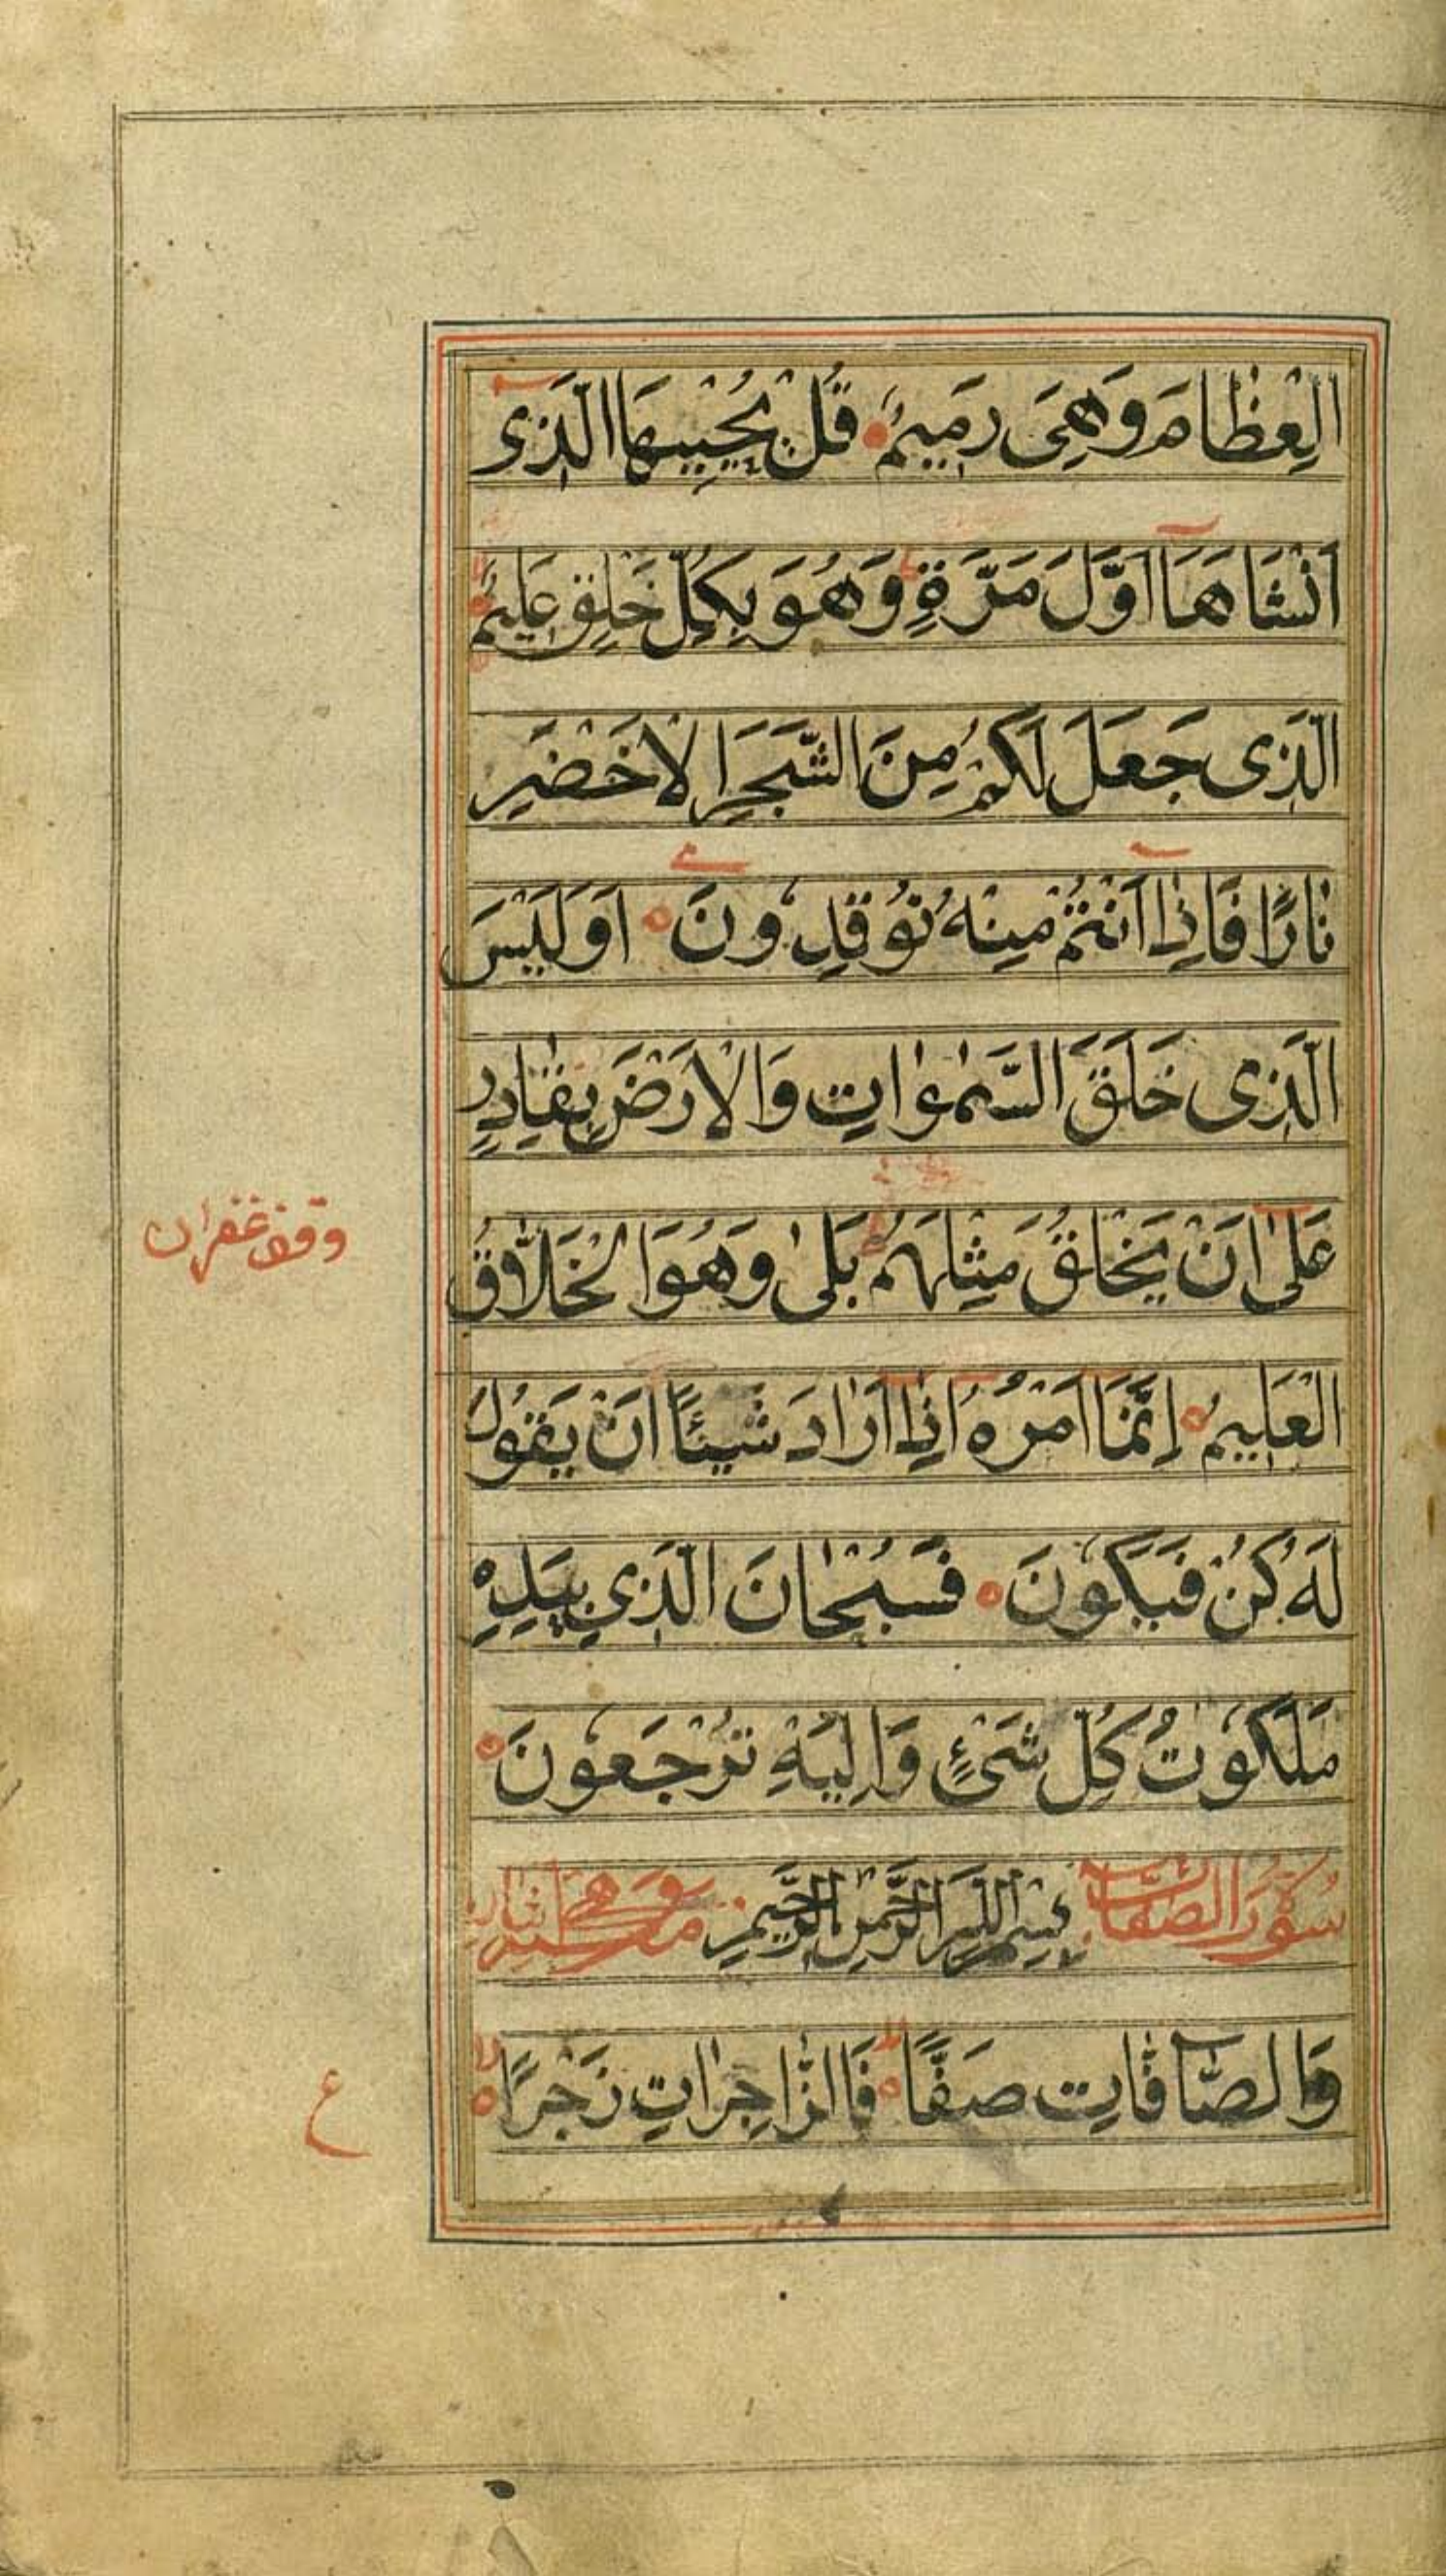 العِظَامَ وَهِىَ رَمِيمٌ قُلْ يُحْيِيهَا الَّذِى
اَنْشَاهَا اَوَّلَ مَرَّةٍ وَهُوَ بِكُلِّ خَلْقٍ عَلِيمٌ
الَّذِى جَعَلَ لَكُمْ مِنَ الشَّجَرِ الْاَخْضَرِ
نَارًا فَاِذَا اَنْتُمْ مِنْهُ تُوْقِدُونَ اَوَلَيْسَ
الَّذِى خَلَقَ السَّمٰوَاتِ وَالْاَرْضَ بِقَادِرٍ
عَلىٰ اَنْ يَخْلُقَ مِثْلَهُمْ بَلىٰ وَهُوَ الْخَلَّاقُ
وقف غفران
الْعَلِيمُ اِنَّمَا اَمْرُهُ اِذَا اَرَادَ شَيْئًا اَنْ يَقُولَ
لَهُ كُنْ فَيَكُونَ فَسُبْحَانَ الَّذِي بِيَدِهِ
مَلَكُوتُ كُلِّ شَىْءٍ وَاِلَيْهِ تُرْجَعُونَ
سورة الصافات بِسْمِ اللهِ الرَّحْمٰنِ الرَّحِيمِ
وَالصَّافَّاتِ صَفًّا فَالزَّاجِرَاتِ زَجْرًا
ع